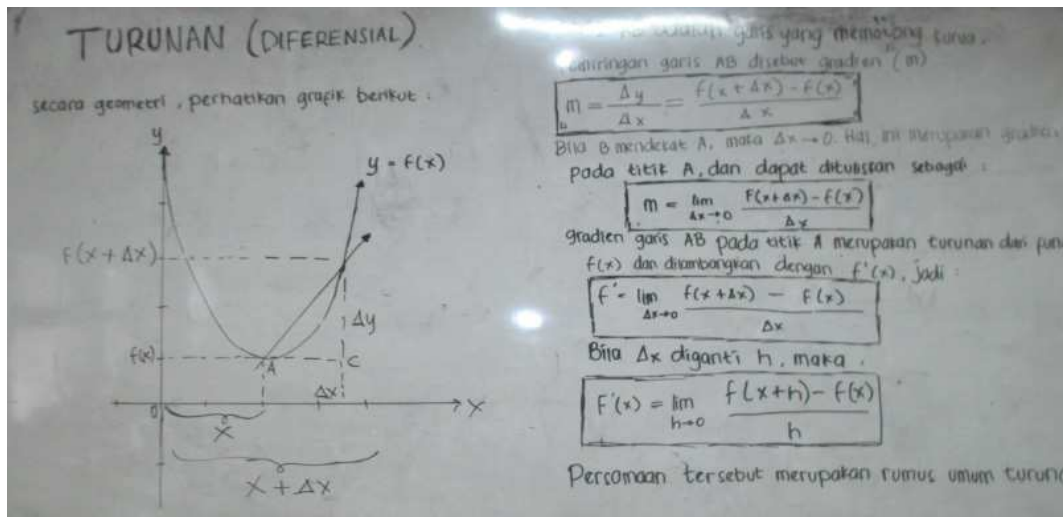 TURUNAN (DIFERENSIAL)
secara geometri, perhatikan grafik berikut :
y
y = f(x)
f(x + Δx)
Δy
f(x)
A
C
Δx
0
X
X
X + Δx
garis yang memotong kurva.
garis AB disebut gradien (m)
m = Δy / Δx = f(x + Δx) - f(x) / Δx
Bila B mendekat A, maka Δx → 0. Hal ini merupakan
pada titik A, dan dapat dituliskan sebagai :
m = lim Δx→0 F(x+Δx) - f(x) / Δx
gradien garis AB pada titik A merupakan turunan dari
f(x) dan dilambangkan dengan f'(x), jadi :
f' = lim Δx→0 f(x + Δx) - f(x) / Δx
Bila Δx diganti h, maka .
F'(x) = lim h→0 f(x+h) - f(x) / h
Persamaan tersebut merupakan rumus umum